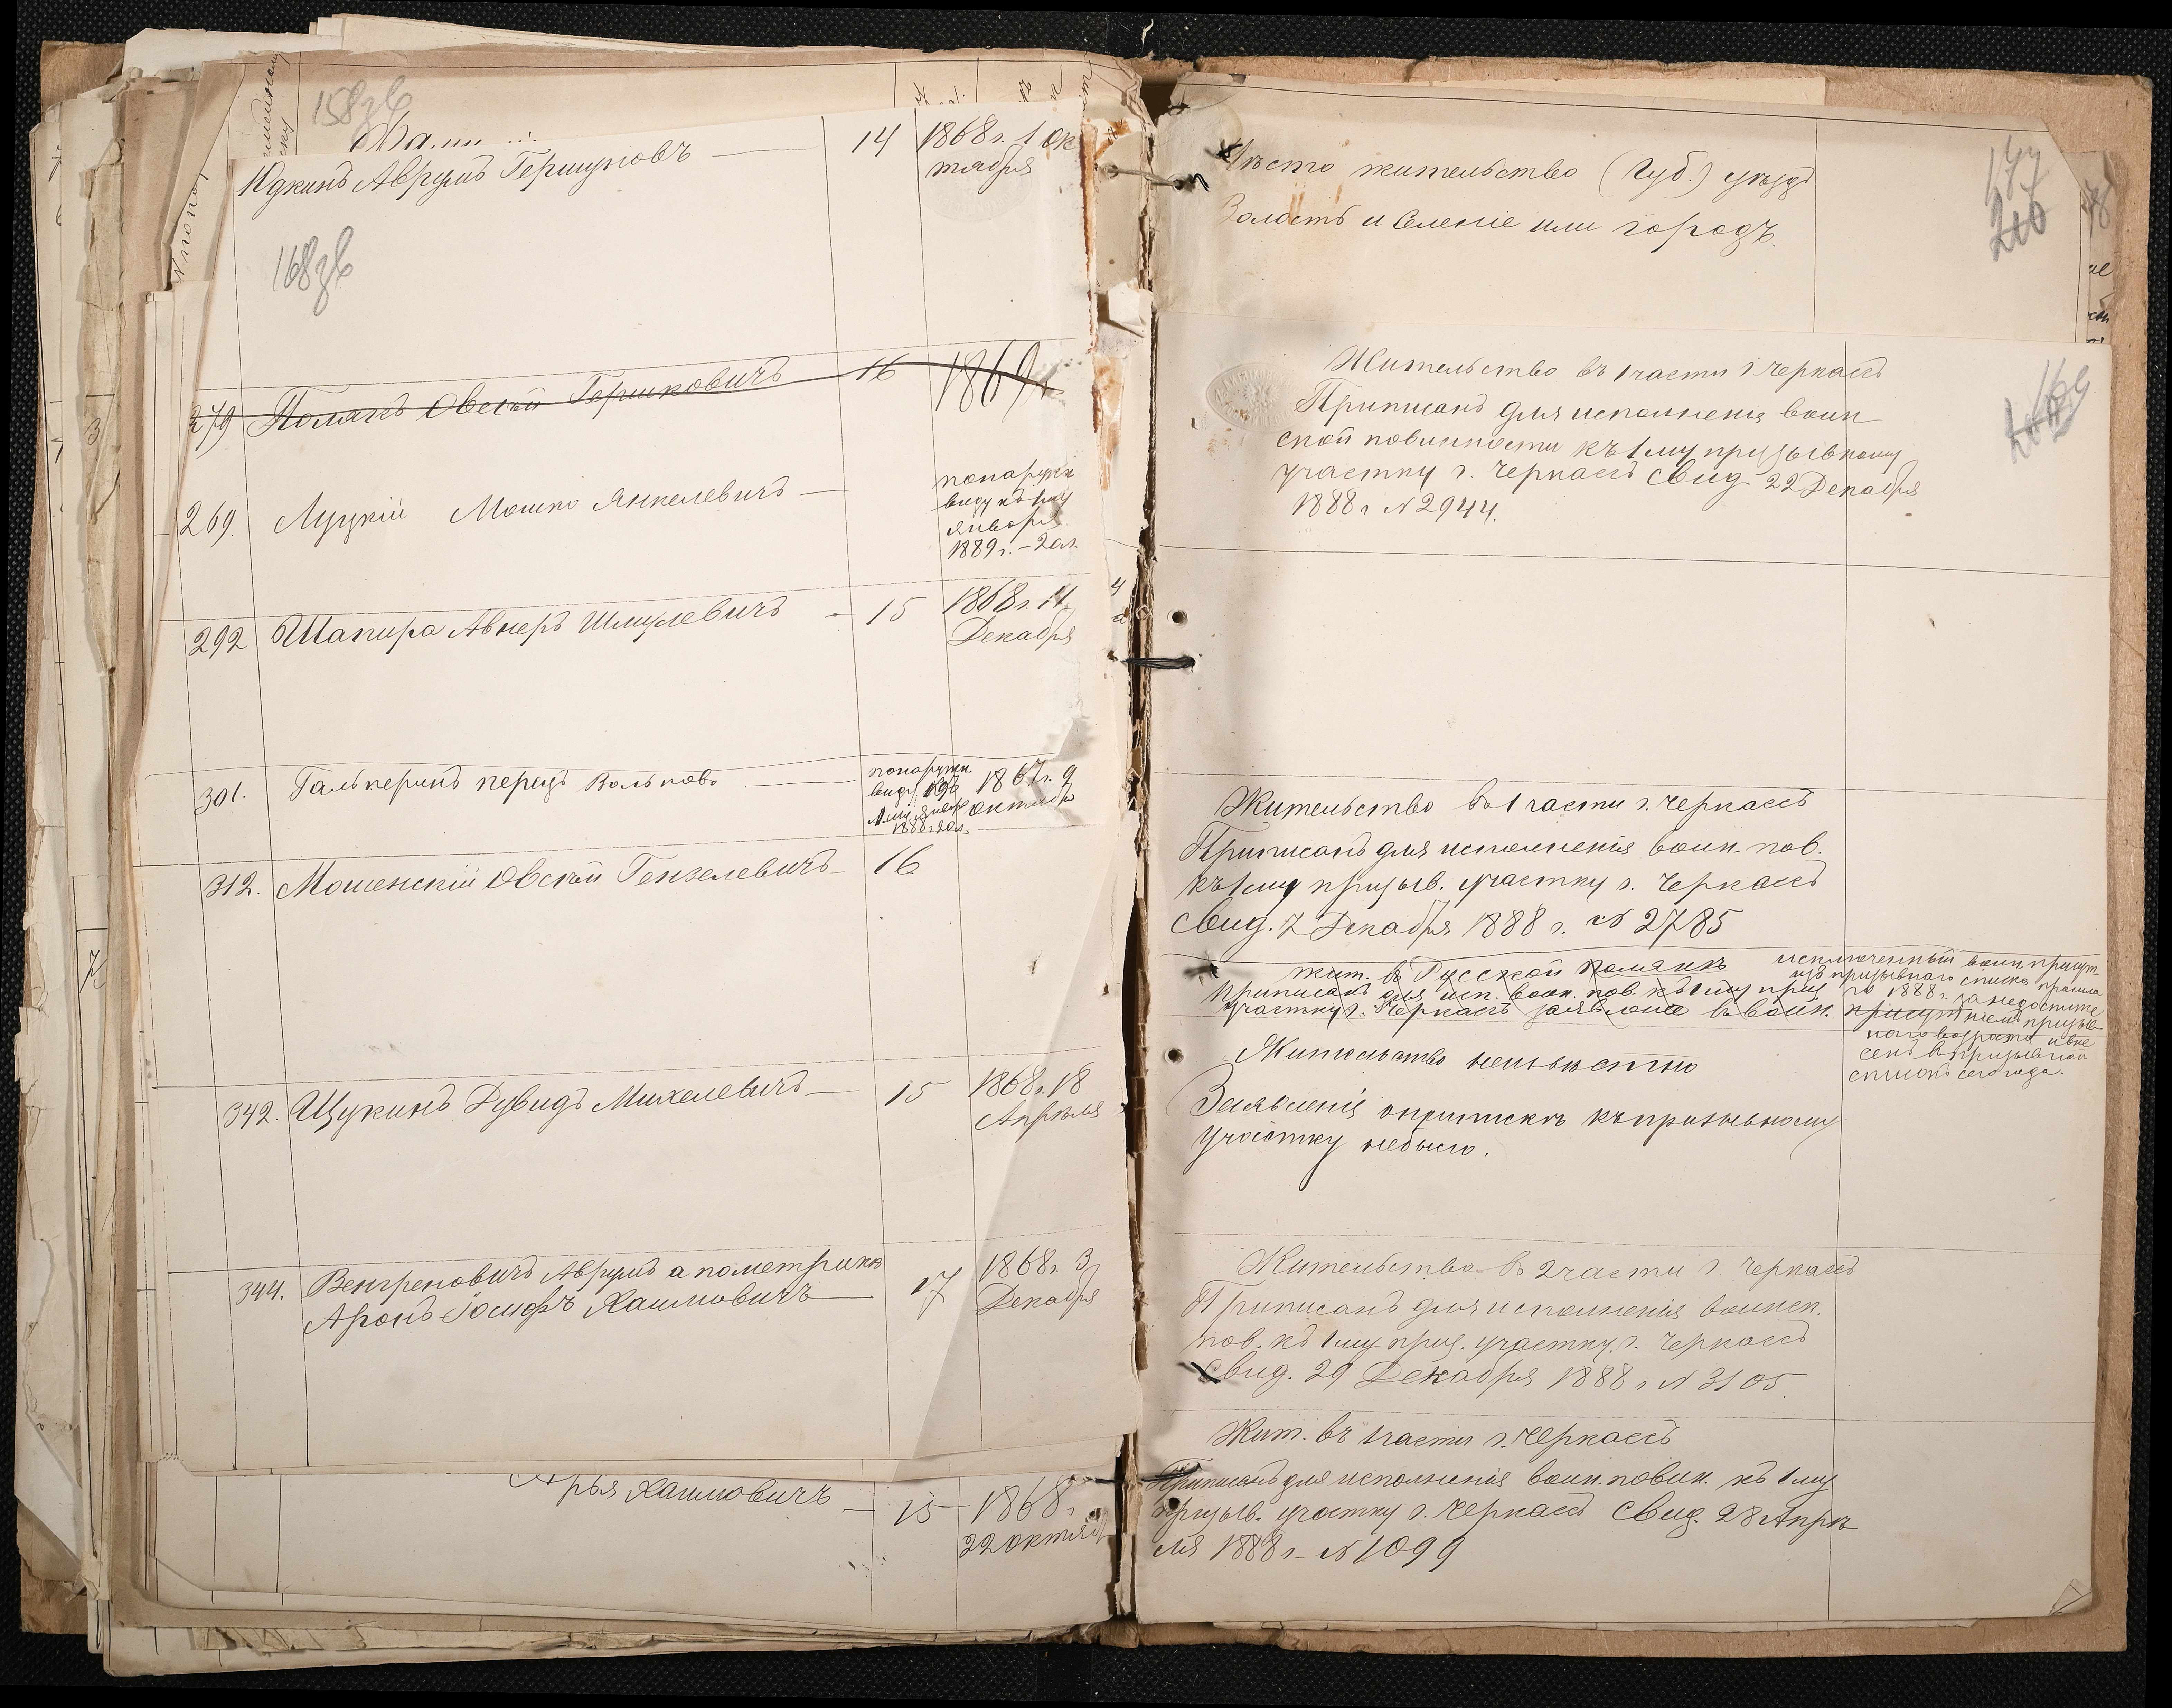 158 зв
Юдкинъ Аврумъ Гершуновъ — 14 1868 г. 1 Ок
тября
168 зв
279 Полякъ Овсѣй Гершковичъ 16 1869
269. Луцкій Мошко Янкелевичъ —
понаружн
виду къ 1му
января
1889 г. – 20 л.
292 Шапира Авнеръ Шмулевичъ – 15 1868 г. 11
Декабря
301. Гальперинъ перецъ Вольковъ —
понаружн.
виду 19
1888 г. 20 л.
1867 г. 9
октяб
312. Мошенскій Овсѣй Гензелевичъ 16
342. Щукинъ Дувидъ Михелевичъ — 15 1868 г. 18
Апрѣля
344. Венгреновичъ Аврумъ а пометрикѣ
Аронъ Іосифъ Хаимовичъ — 17
1868 г. 3
Декабря
Арья Хаимовичъ — 15 1868 г
22 октяб
Мѣсто жительство (Губ.) уѣздъ
Волость и Селеніе или городъ.
169
Жительство въ 1 части г. Черкассъ
Приписанъ для исполненія воин
ской повинности къ 1му призывному
участку г. Черкассъ Свид. 22 Декабря
1888 г. № 2944.
Жительство въ 1 части г. Черкассъ
Приписанъ для исполненія воин. пов.
къ 1му призыв. участку г. Черкассъ
Свид. 7 Декабря 1888 г. № 2785
жит. въ Русской Полянѣ
приписанъ для исп. воин. пов. къ 1му приз
участку г. Черкассъ заявленіе въ воин.
присут
исключенный воин. присут.
изъ призывнаго списка прошла
го 1888 г. за недостиже
ніемъ призыв-
наго возраста и вне
сенъ въ призывной
списокъ сего года.
Жительство неизвѣстно
Заявленія о припискѣ къ призывному
участку небыло.
Жительство въ 2 части г. Черкассъ
Приписанъ для исполненія воинск.
пов. къ 1му приз. участку г. Черкассъ
Свид. 29 Декабря 1888 г. № 3105.
Жит. въ 1 части г. Черкассъ
Приписанъ для исполненія воин. повин. къ 1му
призыв. участку г. Черкассъ Свид. 28 Апрѣ
ля 1888 г. № 1099